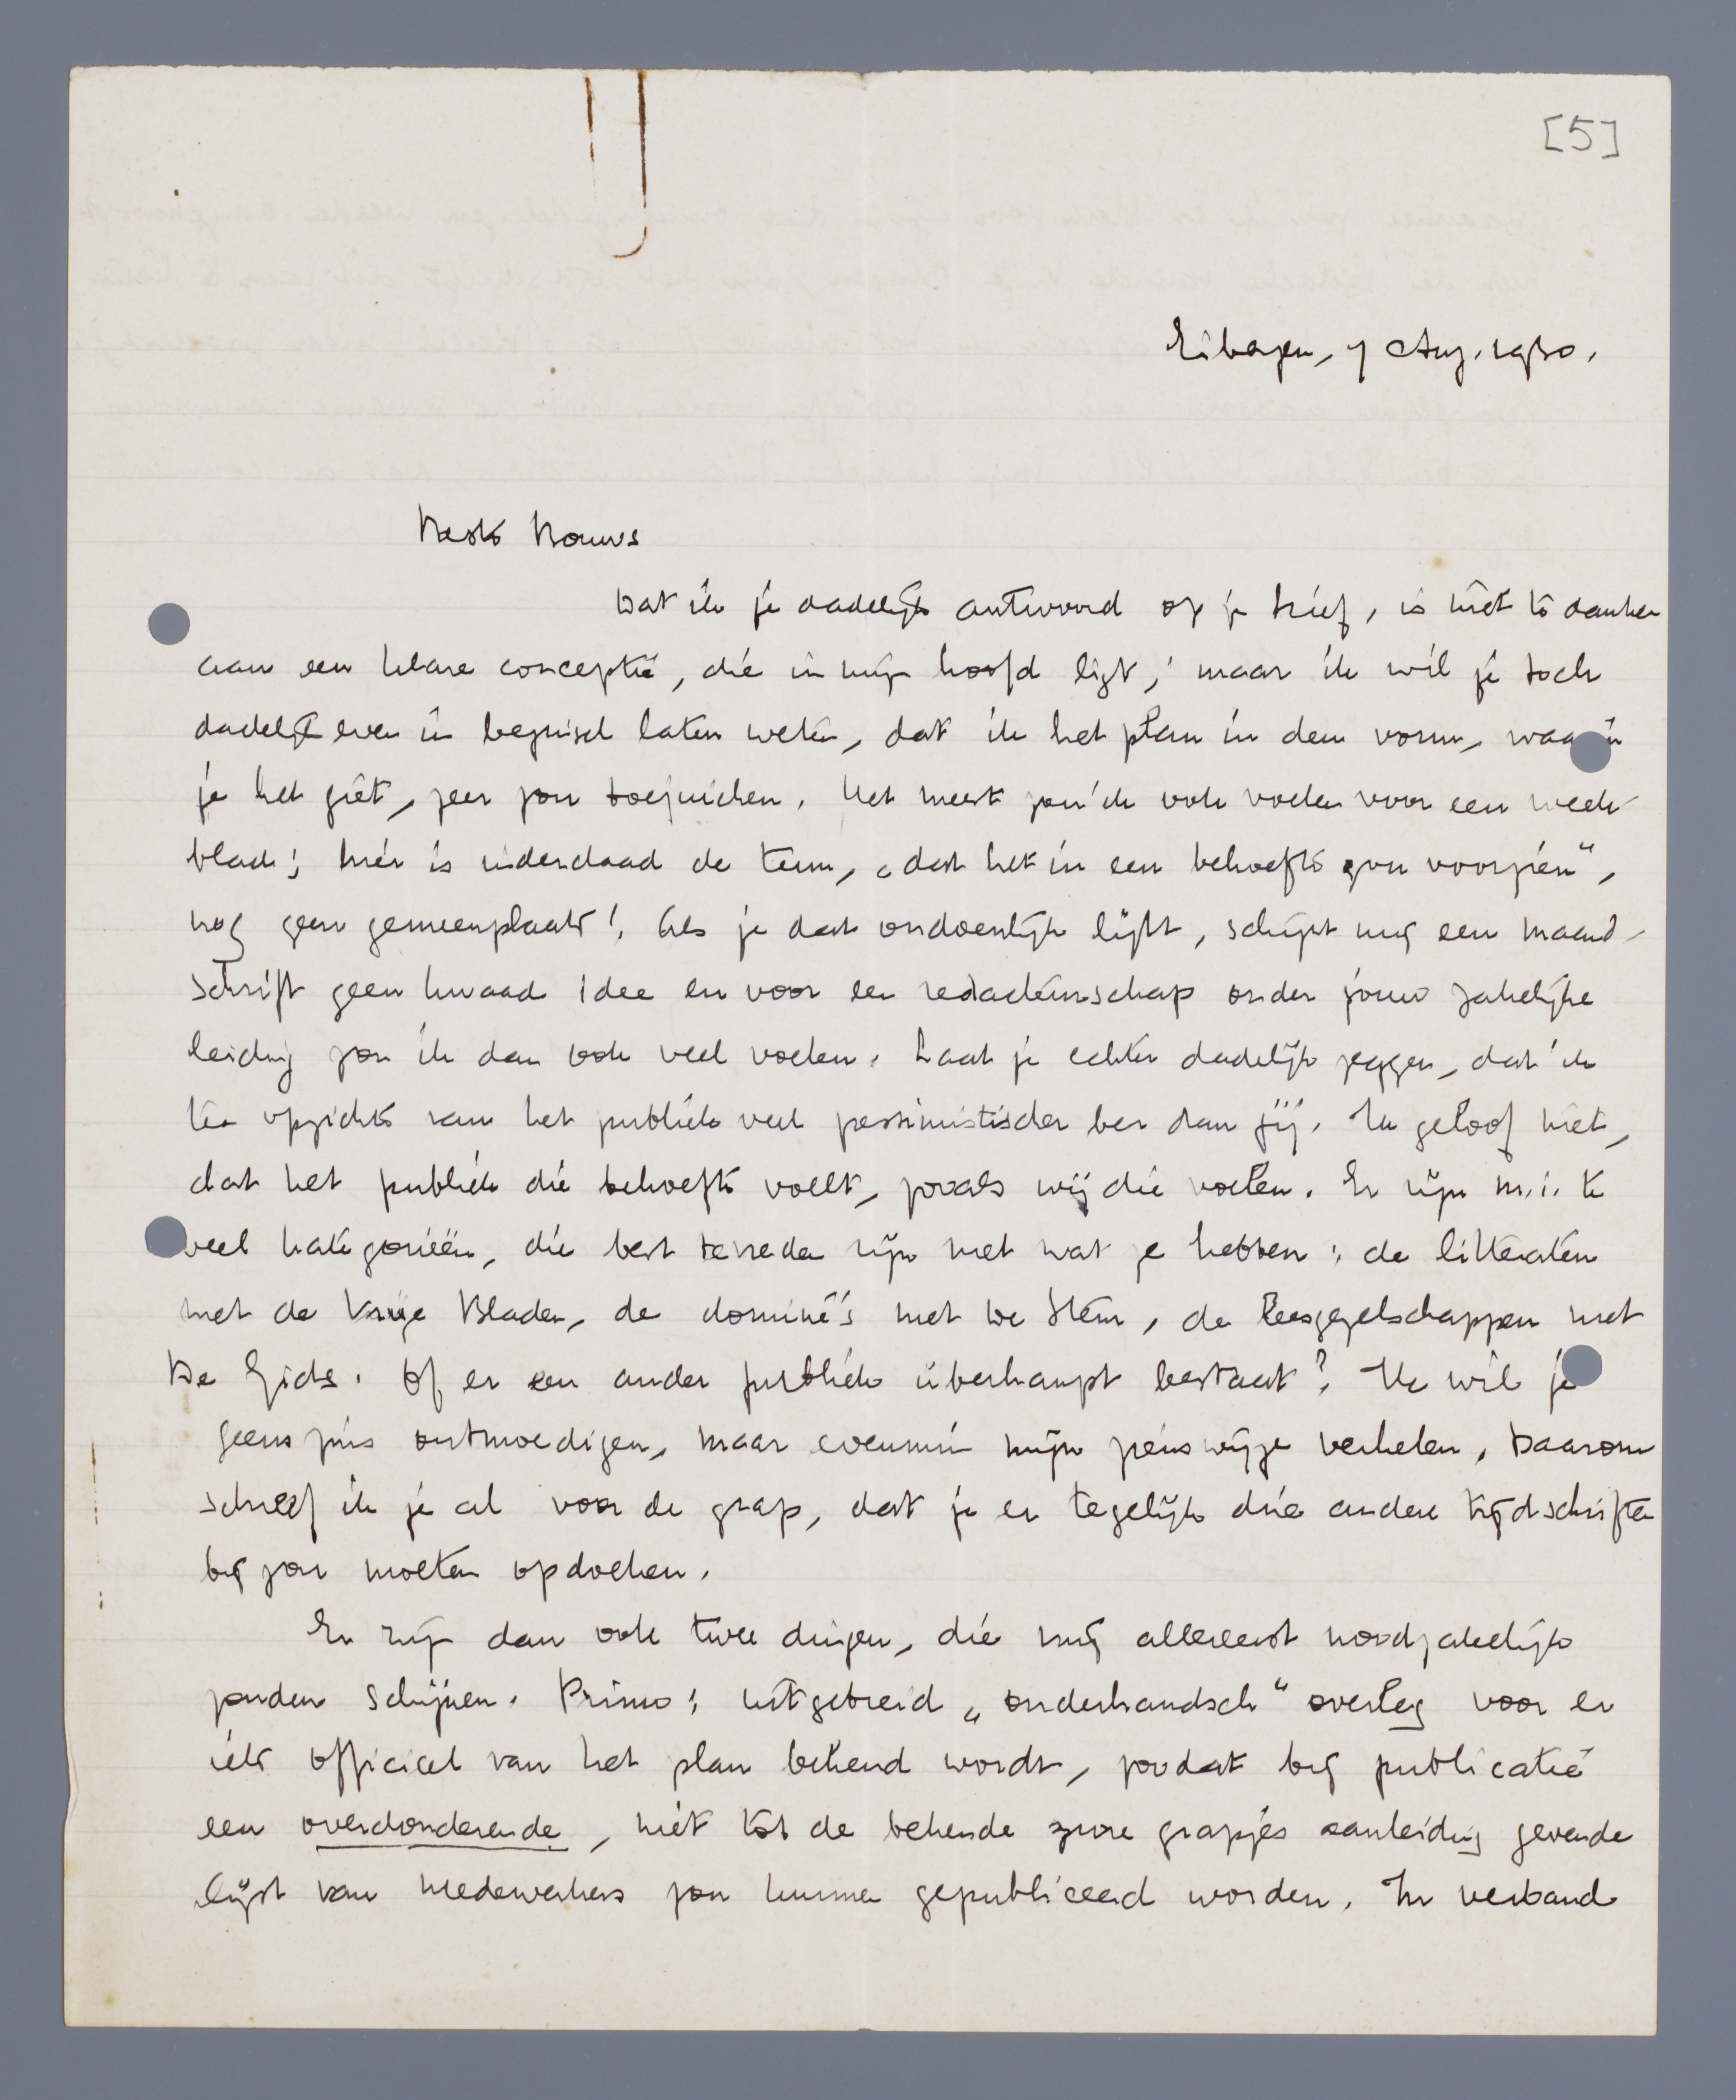 [5]
Eibergen, 7 Aug. 1930.
Beste Bouws
Dat ik je dadelijk antwoord op je brief, is niet te danken
aan een klare conceptie, die in mijn hoofd ligt; maar ik wil je toch
dadelijk even in beginsel laten weten, dat ik het plan in den vorm, waarin
je het giet, zeer zou toejuichen. Het meest zou ik ook voelen voor een week-
blad; hier is inderdaad de term, „dat het in een behoefte zou voorzien“,
nog geen gemeenplaats! Als je dat ondoenlijk lijkt, schijnt mij een maand-
schrift geen kwaad idee en voor een redacteurschap onder jouw zakelijke
leiding zou ik dan ook veel voelen. Laat je echter dadelijk zeggen, dat ik
ten opzichte van het publiek veel pessimistischer ben dan jij. Ik geloof niet,
dat het publiek die behoefte voelt, zooals wij die voelen. Er zijn m.i. te
veel kategorieën, die best tevreden zijn met wat ze hebben: de litteraten
met de Vrije Bladen, de dominé's met De Stem, de leesgezelschappen met
De Gids. Of er een ander publiek überhaupt bestaat? Ik wil je
geenszins ontmoedigen, maar evenmin mijn zienswijze verhelen. Daarom
schreef ik je al voor de grap, dat je er tegelijk drie andere tijdschriften
bij zou moeten opdoeken.
Er zijn dan ook twee dingen, die mij allereerst noodzakelijk
zouden schijnen. Primo: uitgebreid „onderhandsch“ overleg voor er
iets officieel van het plan bekend wordt, zoodat bij publicatie
een overdonderende, niet tot de bekende zure grapjes aanleiding gevende
lijst van medewerkers zou kunnen gepubliceerd worden. In verband